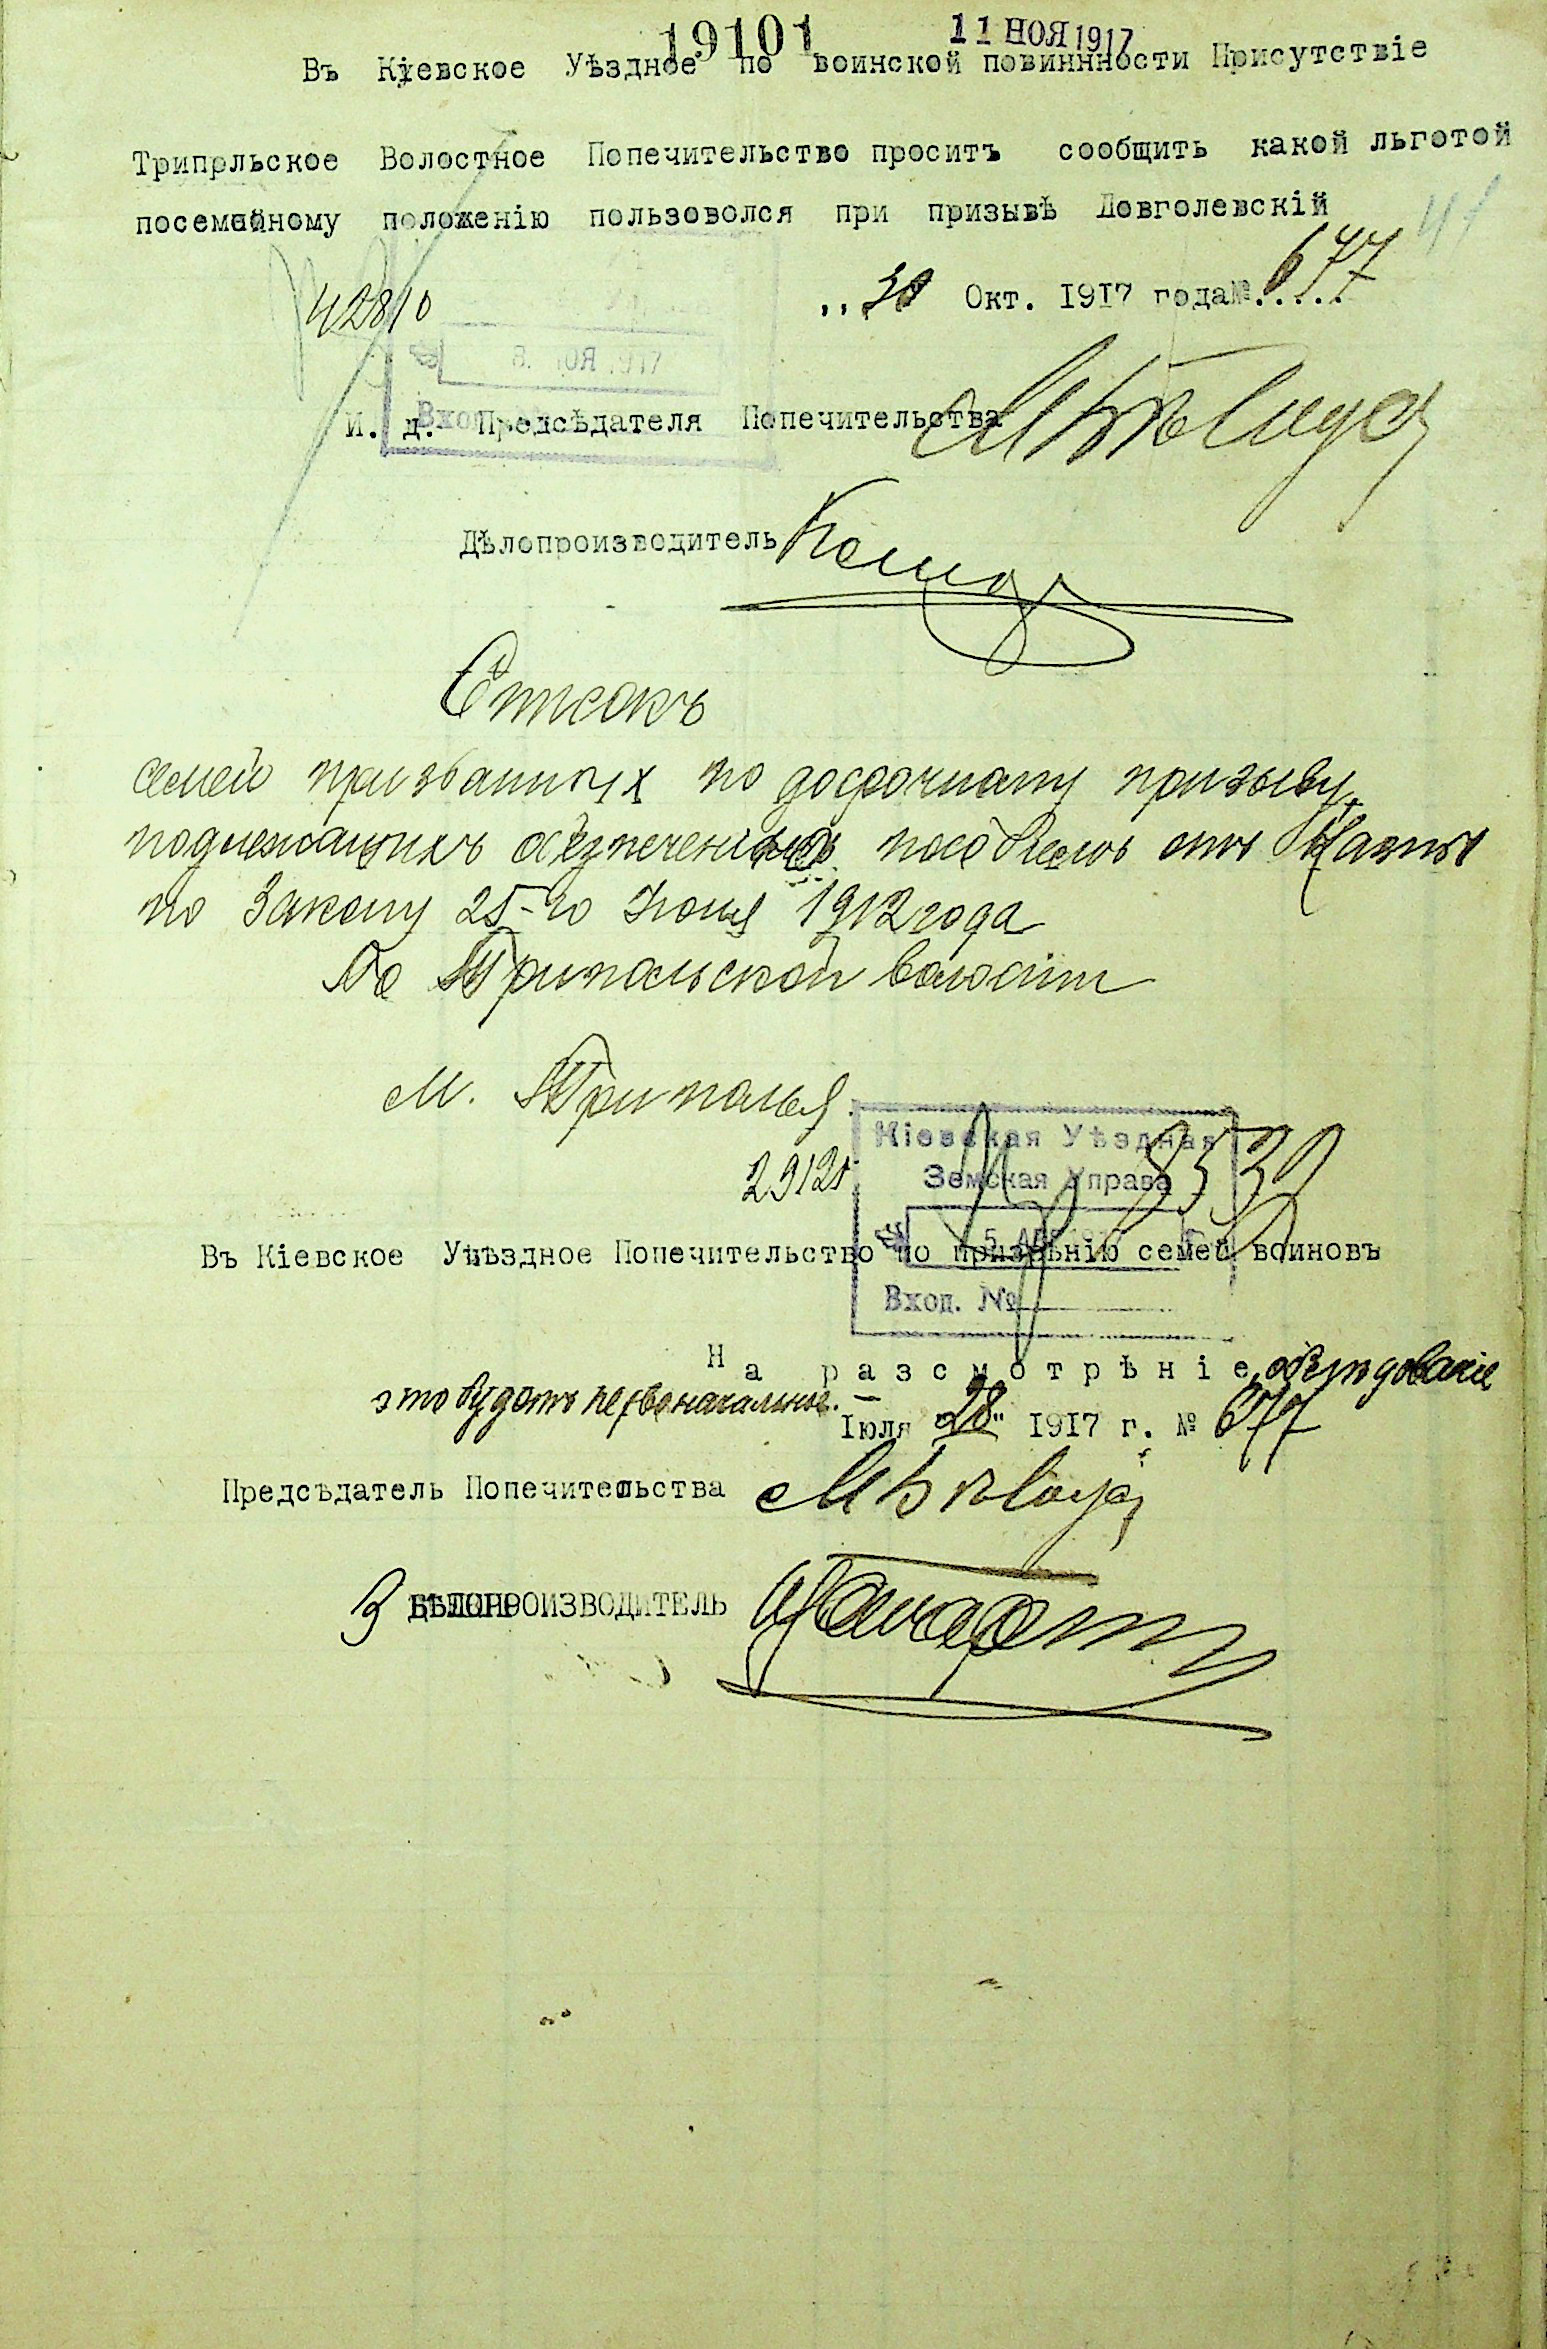 19101 11 НОЯ 1917
Въ Кіевское Уѣздное по воинской повиннности Присутствіе
Трипольское Волостное Попечительство проситъ сообщить какой льготой
посемейному положенію пользоволся при призывѣ Довголевскій
41
42810
,,30 Окт. 1917 года№ 677
И. д. Предсѣдателя Попечительства
Дѣлопроизводитель
Списокъ
семей призванных по досрочному призыву,
подлежащихъ обезпеченію пособіемъ отъ Казны
по Закону 25-го Іюня 1912 года
По Трипольской волости
М. Триполья
Кіевская Уѣздная
Земская Управа
Вход. №
29121
8532
Въ Кіевское Уѣздное Попечительство по призрѣнію семей воиновъ
На разсмотрѣніе, обслѣдованіе
это будетъ первоначальное. —
Іюля "28" 1917 г. № 677
Предсѣдатель Попечительства
ДѢЛОПРОИЗВОДИТЕЛЬ